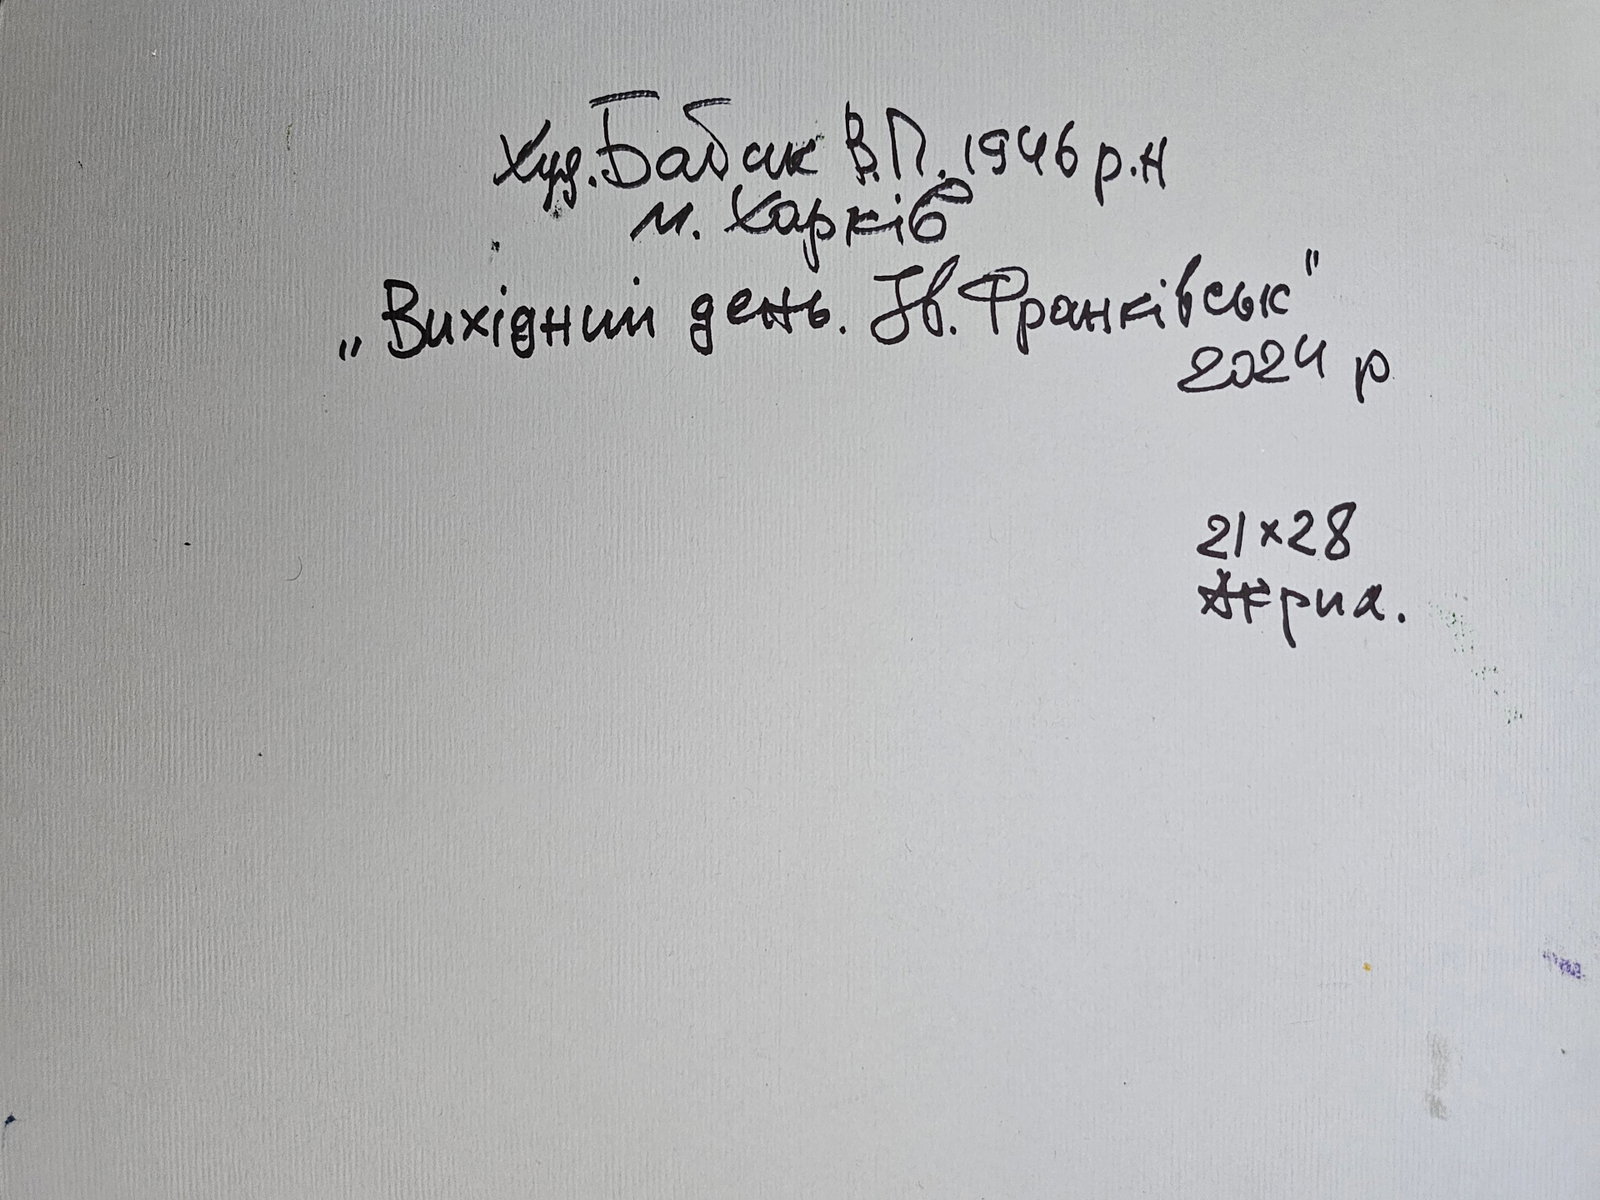 Худ. Бабак В.П. 1946 р.н
м. Харків
„Вихідний день. Ів. Франківськ"
2024 р
21×28
Акрил.